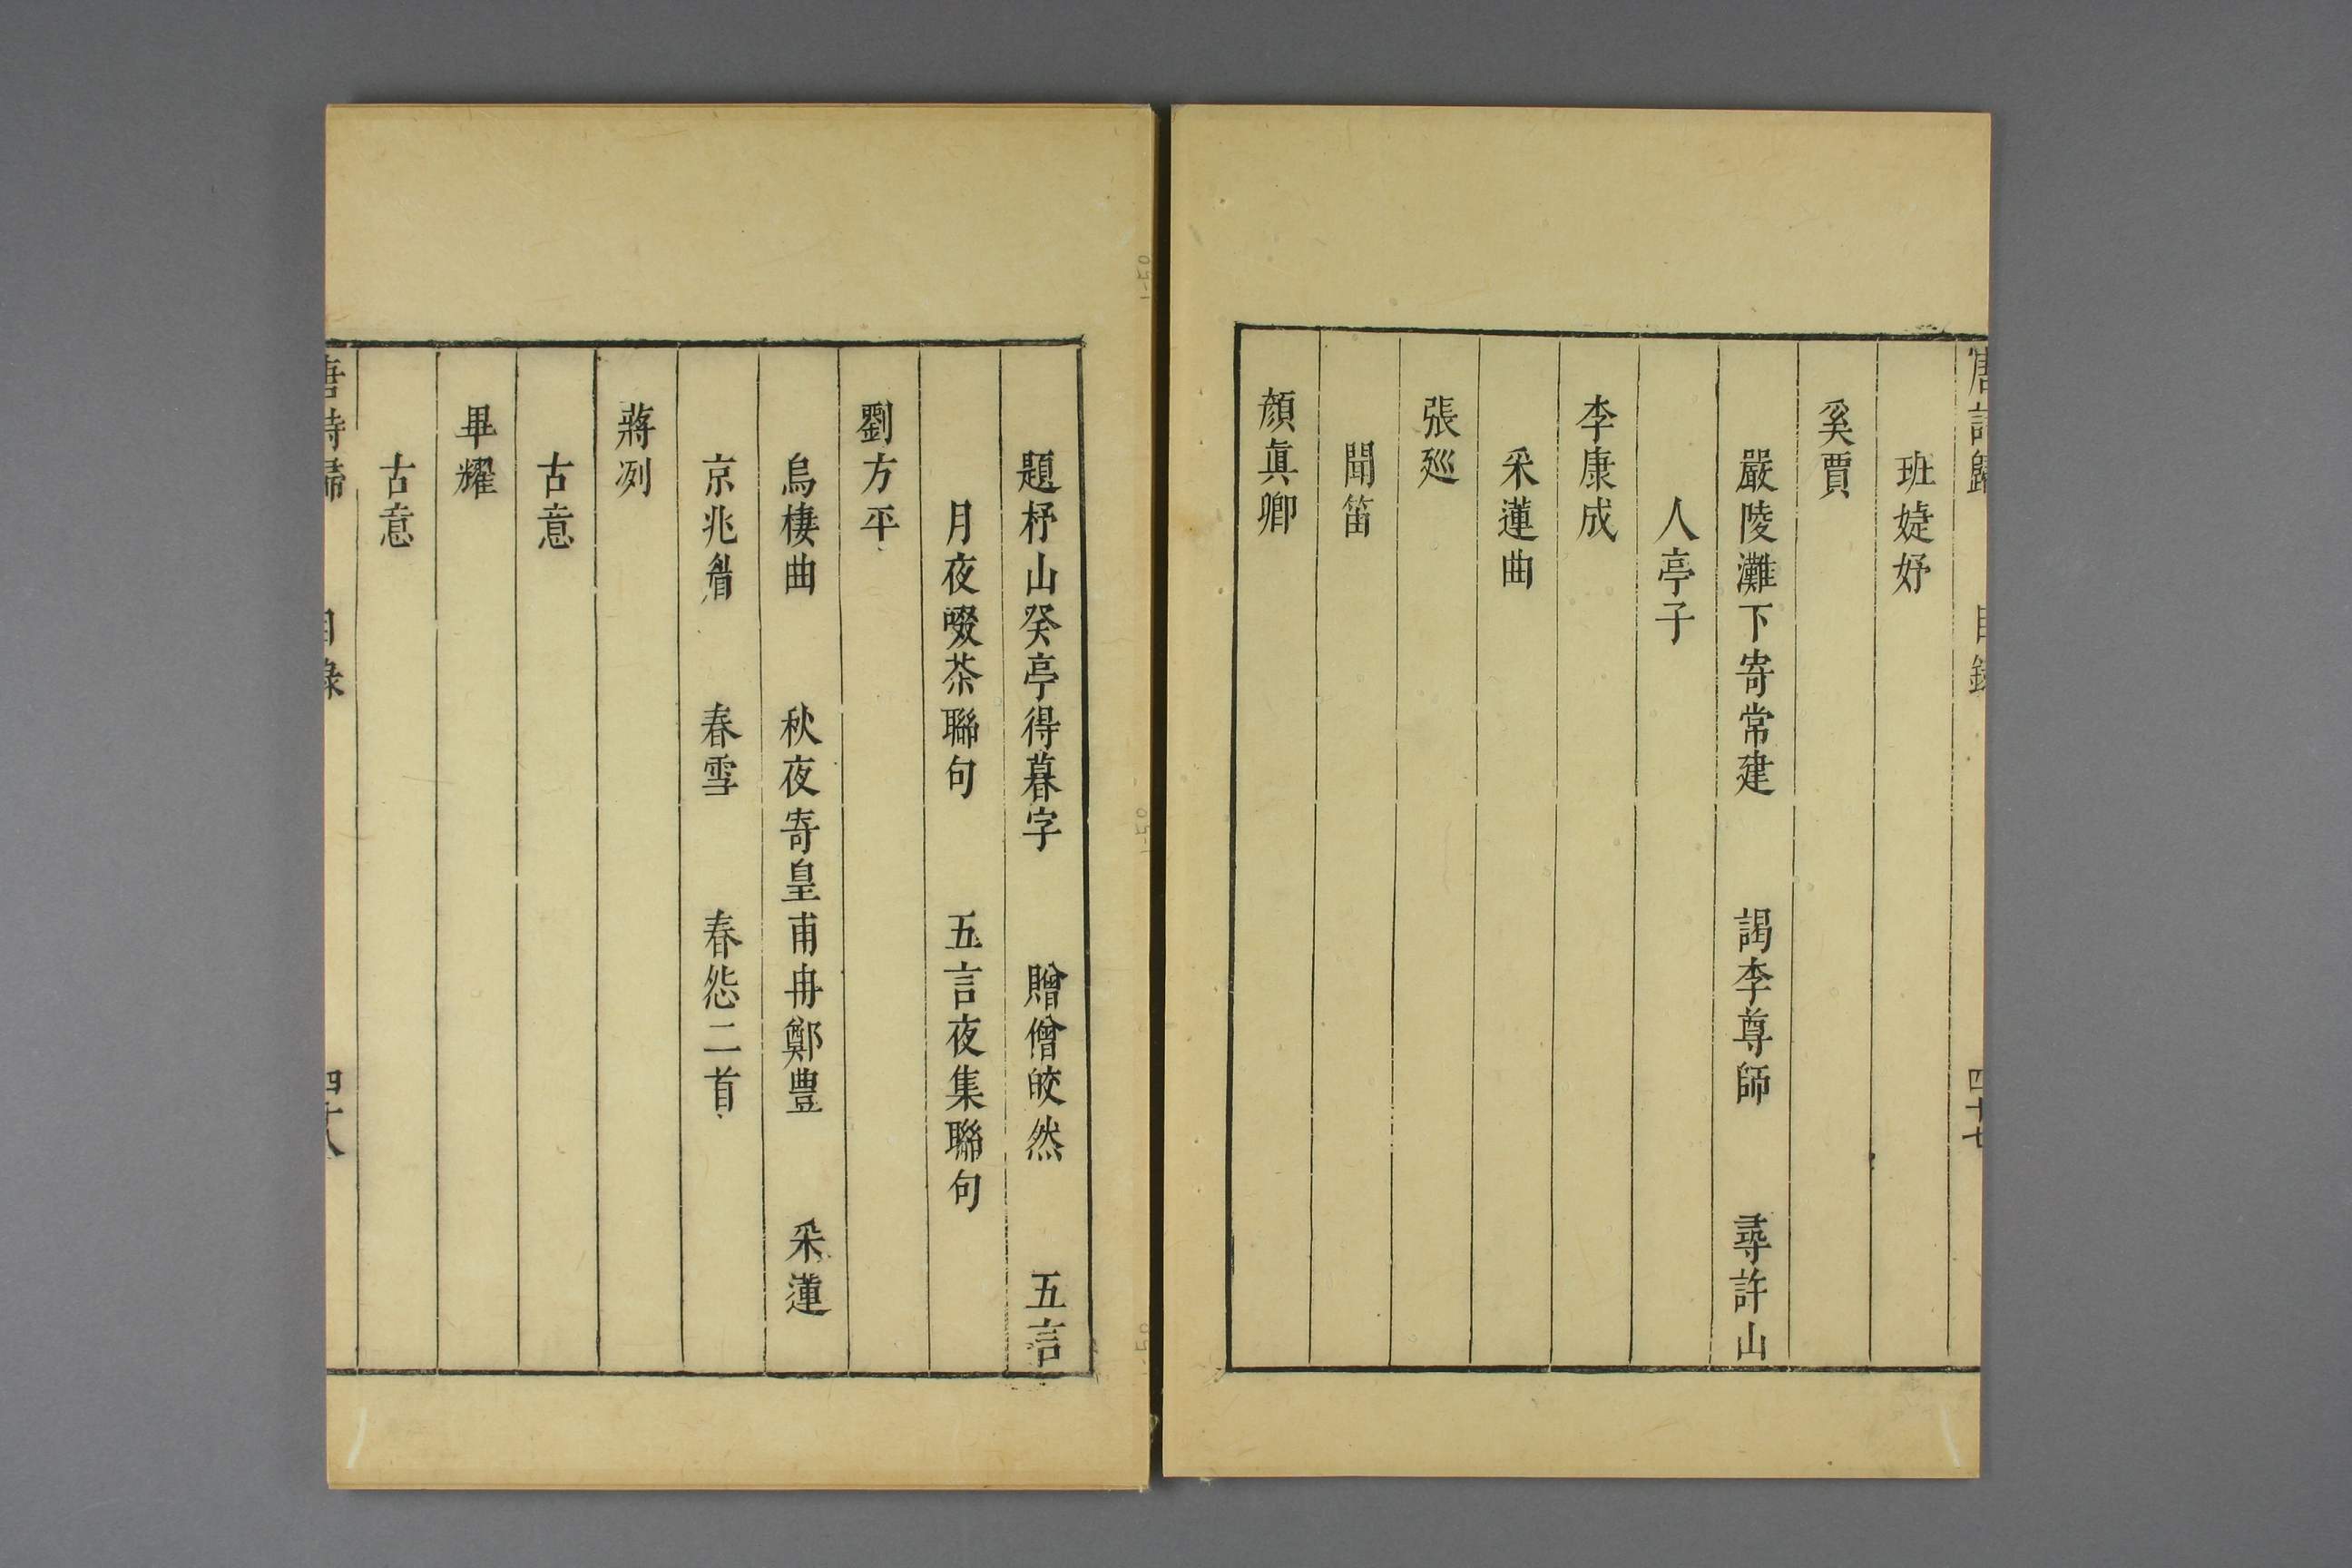 唐詩歸 目錄 四十七
班婕妤
奚賈
嚴陵灘下寄常建 謁李尊師 尋許山
人亭子
李康成
采蓮曲
張巡
聞笛
顏眞卿
題杼山癸亭得暮字 贈僧皎然 五言
月夜啜茶聯句 五言夜集聯句
劉方平
烏棲曲 秋夜寄皇甫冉鄭豊 采蓮
京兆眉 春雪 春怨二首
蔣冽
古意
畢耀
古意
唐詩歸 目錄 四十八
1-50
1-50
1-50